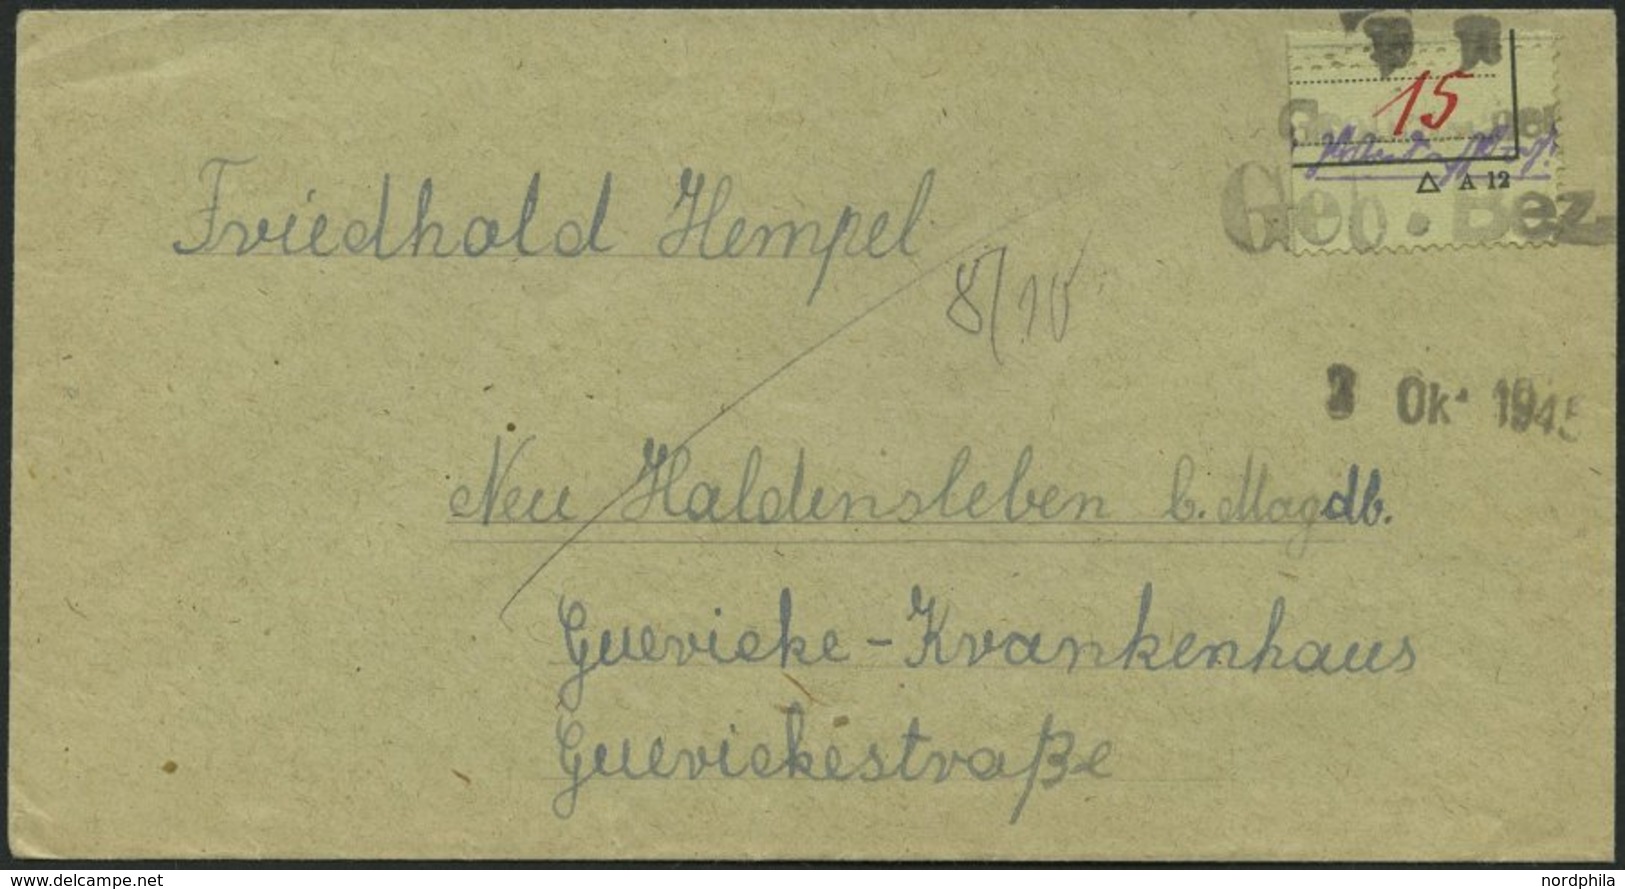 15
△ A 12
Geb. Bez.
Friedhold Hempel
8/10
3 Okt 1945
Neu Haldensleben b. Magdb.
Guericke-Krankenhaus
Guerickestraße
www.delcampe.net
nordphila